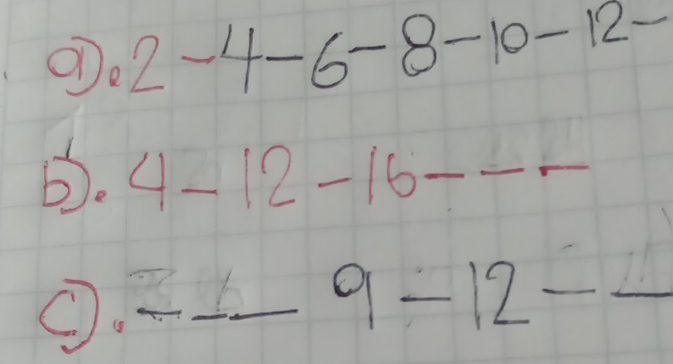 a). 2 - 4 - 6 - 8 - 10 - 12 -
b). 4 - 12 - 16 - - -
c). - - - 9 - 12 - -